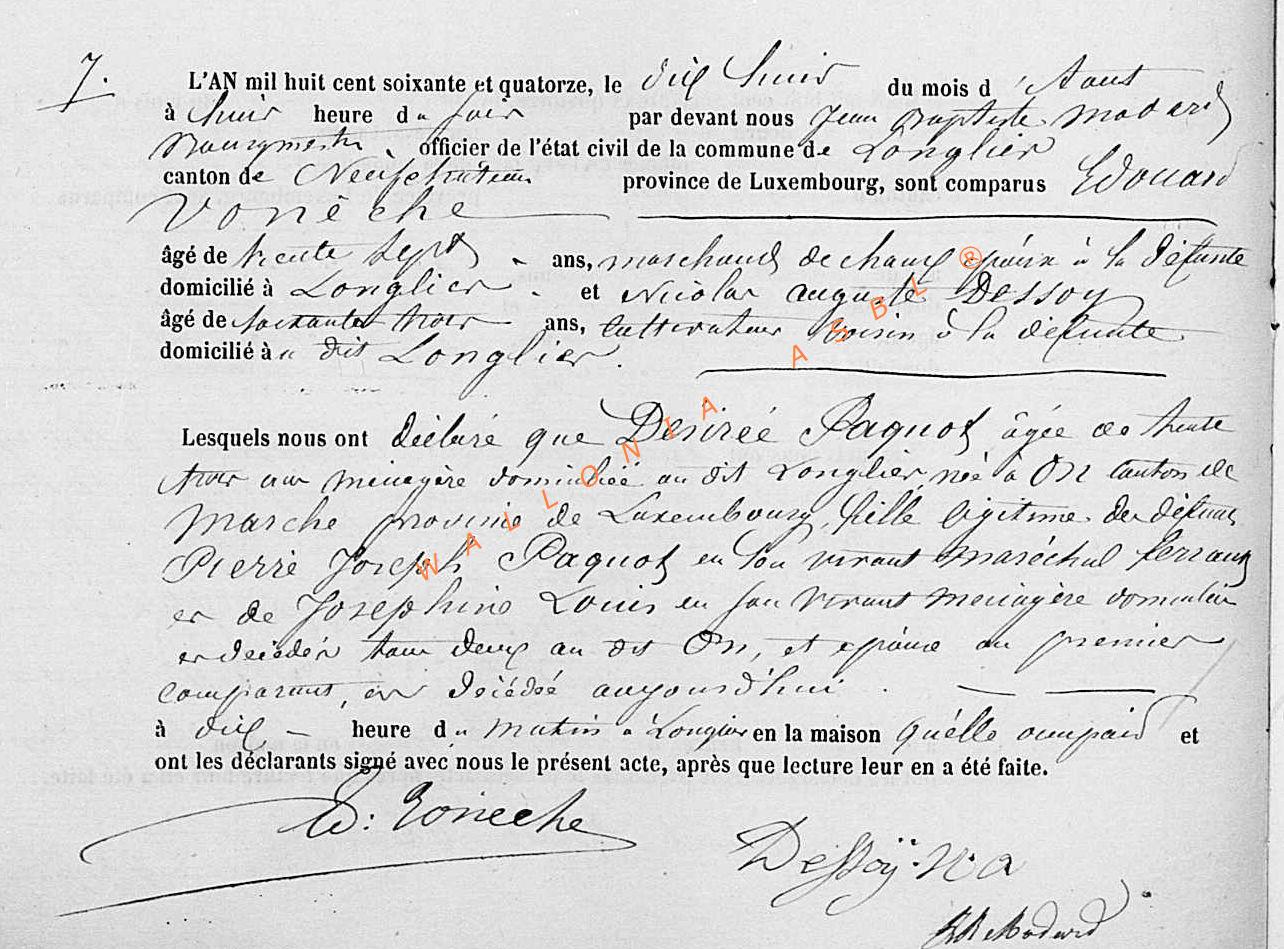 7.
L'AN mil huit cent soixante et quatorze, le dix huit du mois d'Aout
à huit heure du soir par devant nous Jean Baptiste Modard
Bourgmestre, officier de l'état civil de la commune de Longlier
canton de Neufchateau province de Luxembourg, sont comparus Edouard
Vonêche
âgé de trente sept ans, marchand de chaux époux à la défunte
domicilié à Longlier. et Nicolas auguste Dessoy
âgé de soixante trois ans, cultivateur voisin à la défunte
domicilié à u dit Longlier.
Lesquels nous ont déclaré que Désirée Paquot âgée de trente
trois ans menagère domiciliée au dit Longlier, née à On canton de
Marche province de Luxembourg, fille légitime des défunts
Pierre Joseph Paquot en son vivant maréchal ferrant
et de Josephine Louis en son vivant menagère domiciliés
et décédés tous deux au dit On, et épouse au premier
comparant, est décédée aujourd'hui
à dix heure du matin à Longlier en la maison qu'elle occupait et
ont les déclarants signé avec nous le présent acte, après que lecture leur en a été faite.
Ed: Voneche
Dessoÿ. N. a
JB Modard
WALLONIA ASBL ®